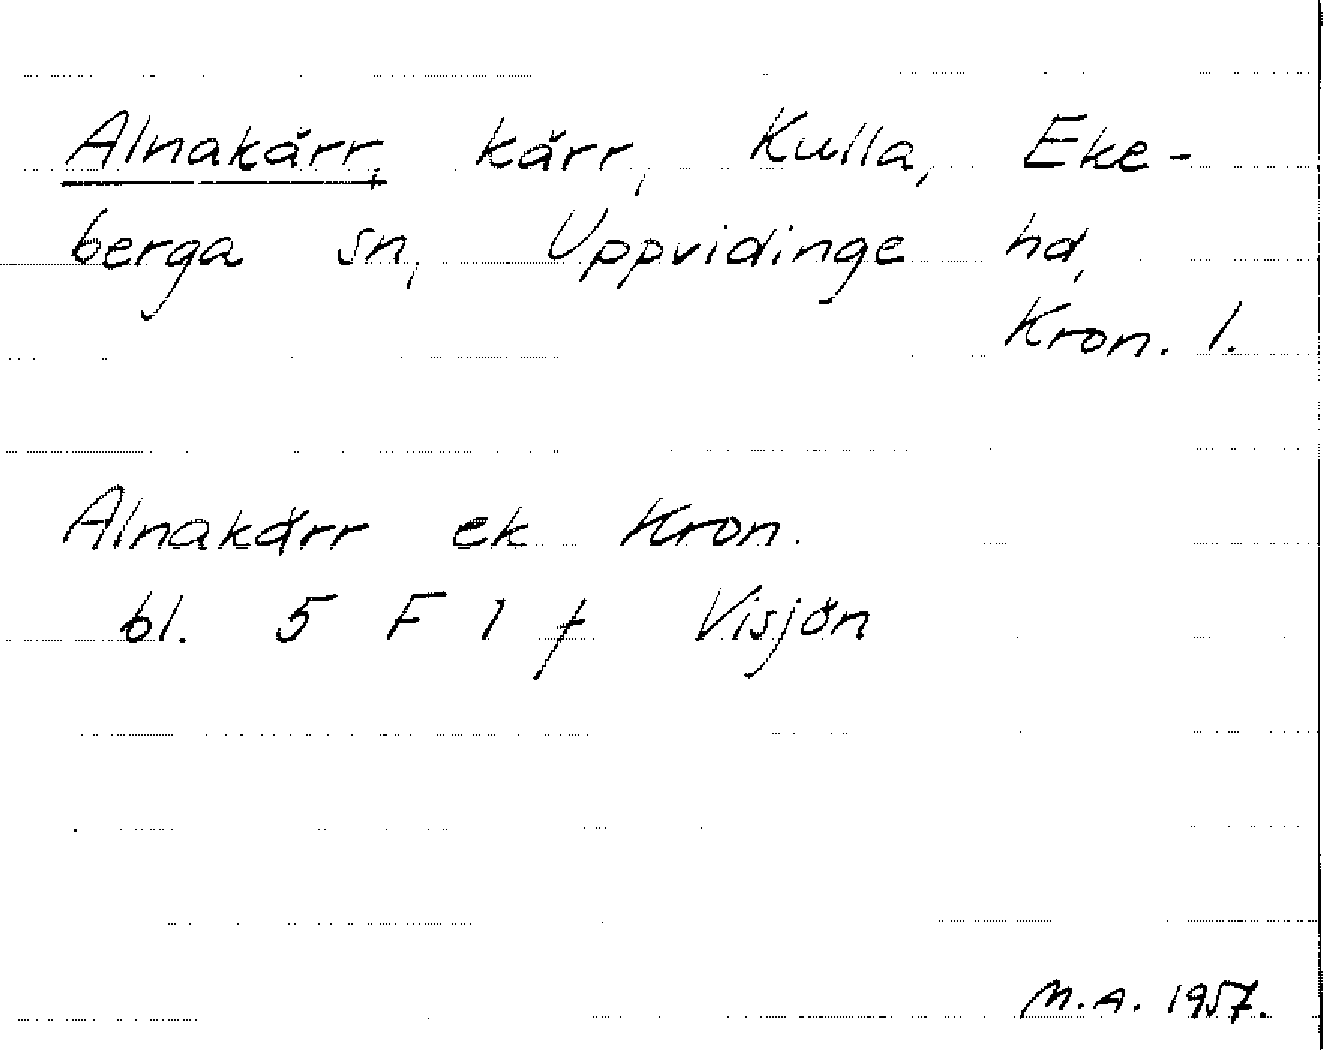 Alnakärr, kärr, Kulla, Eke-
berga sn, Uppvidinge hd,
Kron. l.
Alnakärr ek Kron.
bl. 5 F 1 f Visjön
M.A. 1957.